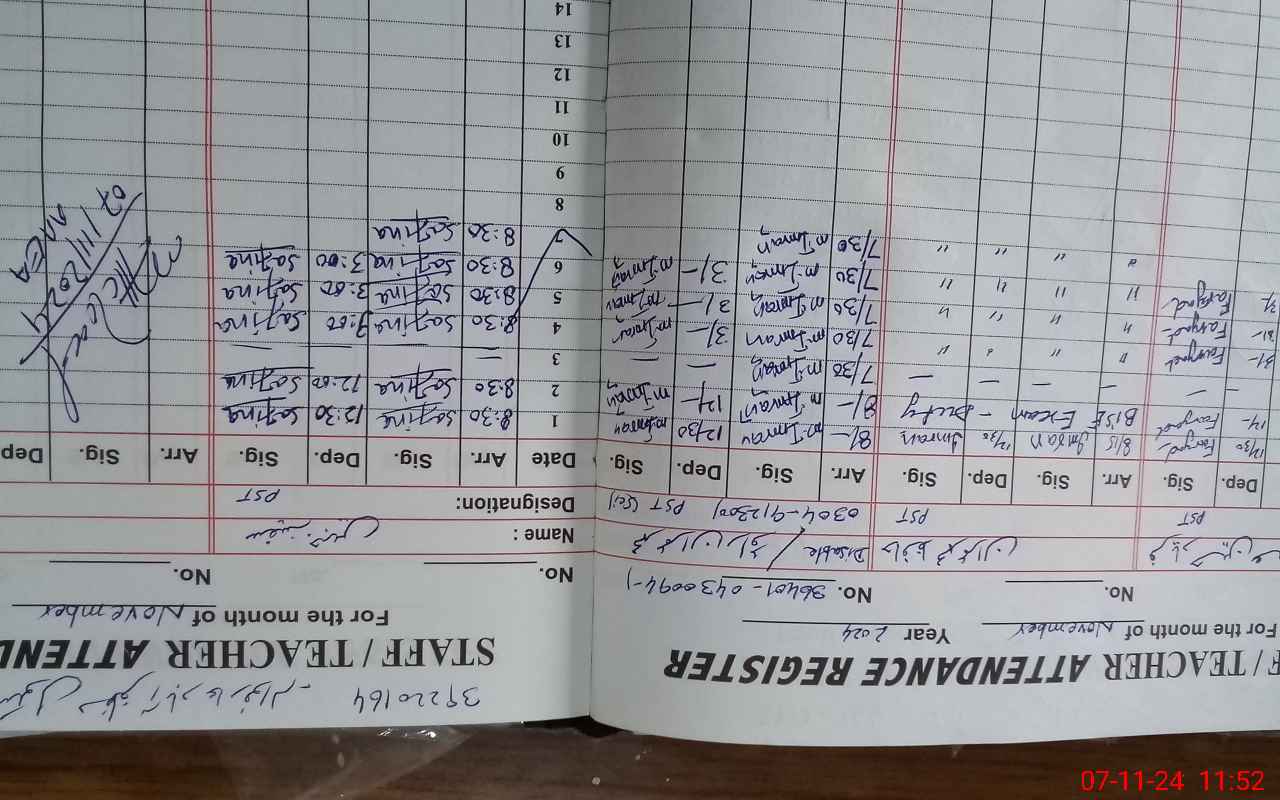 39220164
STAFF / TEACHER ATTEND
For the month of November
No.
No.
Name :
Designation: PST
Date Arr. Sig. Dep. Sig. Arr. Sig. Dep
1 8:30 Safina 12:30 Safina
2 8:30 Safina 12:00 Safina
3 — — — —
4 8:30 Safina 3:00 Safina
5 8:30 Safina 3:00 Safina
6 8:30 Safina 3:00 Safina
7 8:30 Safina
8
9
10
11
12
13
14
AEA
07/11/2024
F / TEACHER ATTENDANCE REGISTER
For the month of November Year 2024
No.
No. 36401-0430094-1
Disable /
PST PST 0304-9123001 PST (Sci)
Dep. Sig. Arr. Sig. Dep. Sig. Arr. Sig. Dep. Sig.
12/30 Faryad 8/5 Imran 12/30 Imran 8/- M Imran 12/30 M Imran
1/- Faryad BISE Exam - Duty 8/- M Imran 12/- M Imran
— — — — — — 7/30 M Imran — —
3/- Faryad " " " " 7/30 M Imran 3/- M Imran
3/- Faryad " " " " 7/30 M Imran 3/- M Imran
3/- Faryad " " " " 7/30 M Imran 3/- M Imran
" " " " 7/30 M Imran
07-11-24 11:52